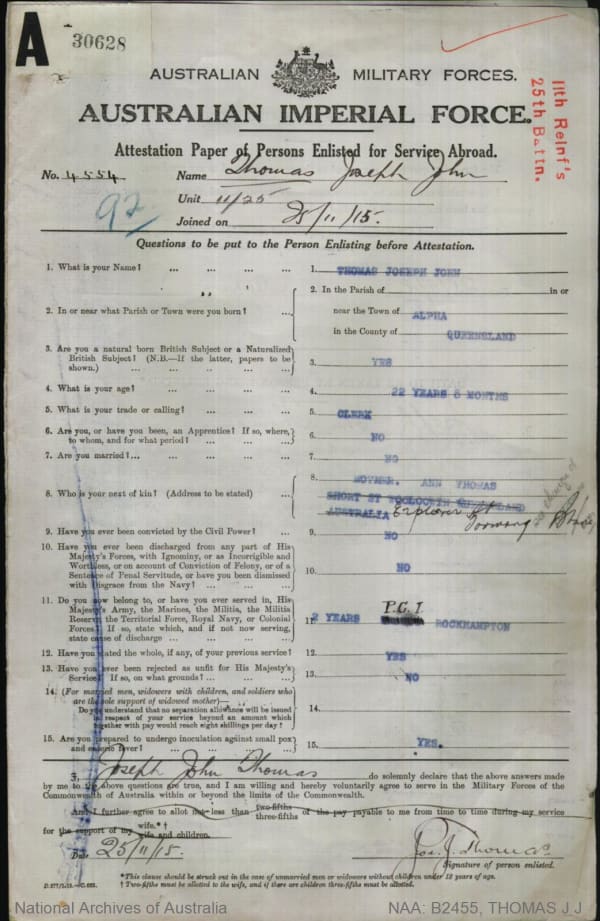 A
30628
AUSTRALIAN MILITARY FORCES.
AUSTRALIAN IMPERIAL FORCE.
11th Reinf's
25th Battn.
Attestation Paper of Persons Enlisted for Service Abroad.
No. 4554 Name Thomas Joseph John
Unit 11/25
92
Joined on 25/11/15.
Questions to be put to the Person Enlisting before Attestation.
1. What is your Name? ... ... ... ... 1. THOMAS JOSEPH JOHN
2. In or near what Parish or Town were you born? ... 2. In the Parish of in or
near the Town of ALPHA
in the County of QUEENSLAND
3. Are you a natural born British Subject or a Naturalized
British Subject? (N.B.—If the latter, papers to be
shown.) ... ... ... ... 3. YES
4. What is your age? ... ... ... ... 4. 22 YEARS 8 MONTHS
5. What is your trade or calling? ... ... ... 5. CLERK
6. Are you, or have you been, an Apprentice? If so, where,
to whom, and for what period? ... ... ... 6. NO
7. Are you married?... ... ... ... 7. NO
8. Who is your next of kin? (Address to be stated) ... 8. MOTHER. ANN THOMAS
SHORT ST TOOLOOWIN QUEENSLAND
AUSTRALIA Explorer St
Toowong
9. Have you ever been convicted by the Civil Power? ... 9. NO
10. Have you ever been discharged from any part of His
Majesty's Forces, with Ignominy, or as Incorrigible and
Worthless, or on account of Conviction of Felony, or of a
Sentence of Penal Servitude, or have you been dismissed
with Disgrace from the Navy? ... ... ... 10. NO
11. Do you now belong to, or have you ever served in, His
Majesty's Army, the Marines, the Militia, the Militia
Reserve, the Territorial Force, Royal Navy, or Colonial
Forces? If so, state which, and if not now serving,
state cause of discharge ... ... ... 11. 2 YEARS P.G.I. ROCKHAMPTON
12. Have you stated the whole, if any, of your previous service? 12. YES
13. Have you ever been rejected as unfit for His Majesty's
Service? If so, on what grounds? ... ... 13. NO
14. (For married men, widowers with children, and soldiers who
are the sole support of widowed mother)—
Do you understand that no separation allowance will be issued
in respect of your service beyond an amount which
together with pay would reach eight shillings per day? 14.
15. Are you prepared to undergo inoculation against small pox
and enteric fever? ... ... ... ... 15. YES.
I, Joseph John Thomas do solemnly declare that the above answers made
by me to the above questions are true, and I am willing and hereby voluntarily agree to serve in the Military Forces of the
Commonwealth of Australia within or beyond the limits of the Commonwealth.
And I further agree to allot not less than two-fifths three-fifths of the pay payable to me from time to time during my service
for the support of my wife.*† wife and children.
Date 25/11/15. Jos. J. Thomas
Signature of person enlisted.
*This clause should be struck out in the case of unmarried men or widowers without children under 18 years of age.
† Two-fifths must be allotted to the wife, and if there are children three-fifths must be allotted.
National Archives of Australia NAA: B2455, THOMAS J J